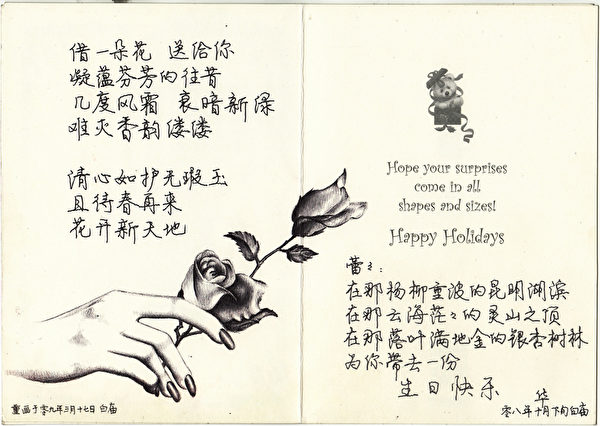 借一朵花 送给你
凝蕴芬芳的往昔
几度风霜 衰暗新绿
难灭香韵偻偻
清心如护无瑕玉
且待春再来
花开新天地
重画于零九年三月十七日 白庙
Hope your surprises
come in all
shapes and sizes!
Happy Holidays
蕾々：
在那杨柳垂波的昆明湖滨
在那云海茫々的灵山之顶
在那落叶满地金的银杏树林
为你带去一份
生日快乐
华
零八年十月下旬白庙